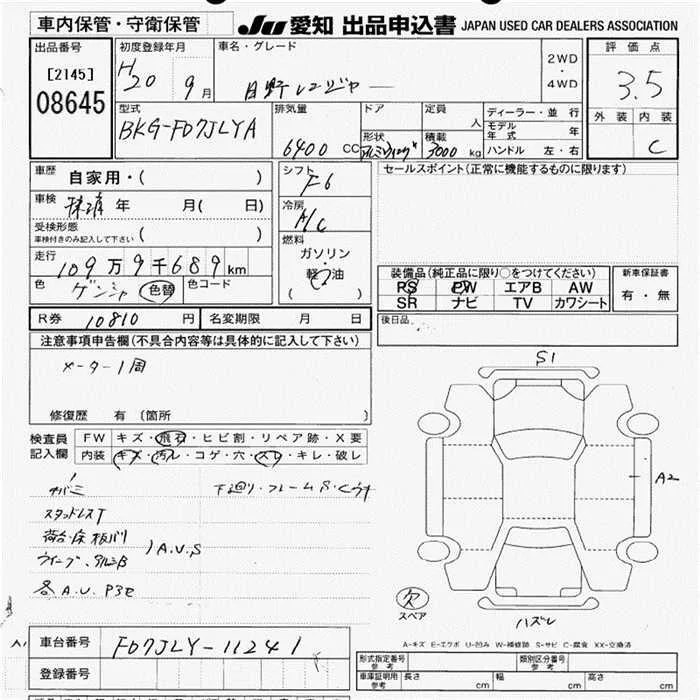 車内保管・守衛保管
JU 愛知 出品申込書 JAPAN USED CAR DEALERS ASSOCIATION
出品番号
[2145]
08645
初度登録年月
H20 9月
車名・グレード
日野レンジャー
2WD
・
4WD
評価点
3.5
外装 内装
C
型式
BKG-FD7JLYA
排気量
6400 CC
ドア
形状
アルミウィング
定員
人
積載
3000 kg
ディーラー・並行
モデル年式 年
ハンドル 左・右
車歴
自家用・( )
車検
抹消 年 月( 日)
受検形態
車検付きのみ記入して下さい ( )
走行
109万9千689km
色
ゲンシャ 色替 色コード
シフト
F6
冷房
A/C
燃料
ガソリン
・
軽油
( )
セールスポイント(正常に機能するものに限ります)
装備品(純正品に限り○をつけてください)
PS PW エアB AW
SR ナビ TV カワシート
新車保証書
有・無
R券 10810 円 名変期限 月 日
後日品
注意事項申告欄(不具合内容等は具体的に記入して下さい)
メーター1周
修復歴 有 〔箇所 〕
検査員
記入欄
FW キズ・飛石・ヒビ割・リペア跡・X要
内装 キズ・汚レ・コゲ・穴・スレ・キレ・破レ
下廻り・フレームS・C
スタッドレスT
荷台・床板バリ
ウイング、アルミB
A.U.S
各A.U P3セ
S1
A2
欠
スペア
ハズレ
A-キズ E-エクボ U-凹み W-補修跡 S-サビ C-腐食 XX-交換済
車台番号 FD7JLY-11241
登録番号
形式指定番号
参考
類別区分番号
参考
車庫証明用
参考
長さ cm 幅 cm 高さ cm